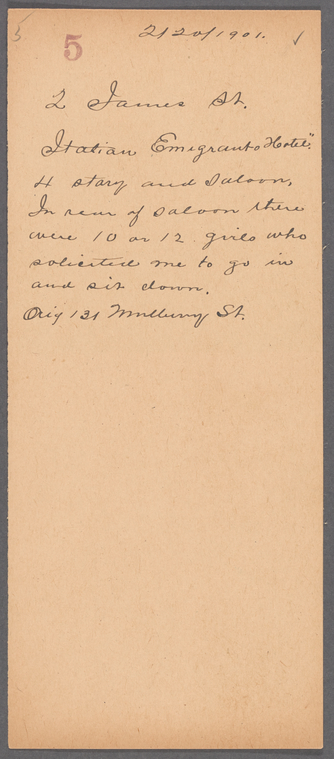 5
5 2/20/1901. ✓
2 James St.
Italian Emigrants Hotel".
4 story and Saloon,
In rear of saloon there
were 10 or 12 girls who
solicited me to go in
and sit down.
Orig 131 Mulberry St.